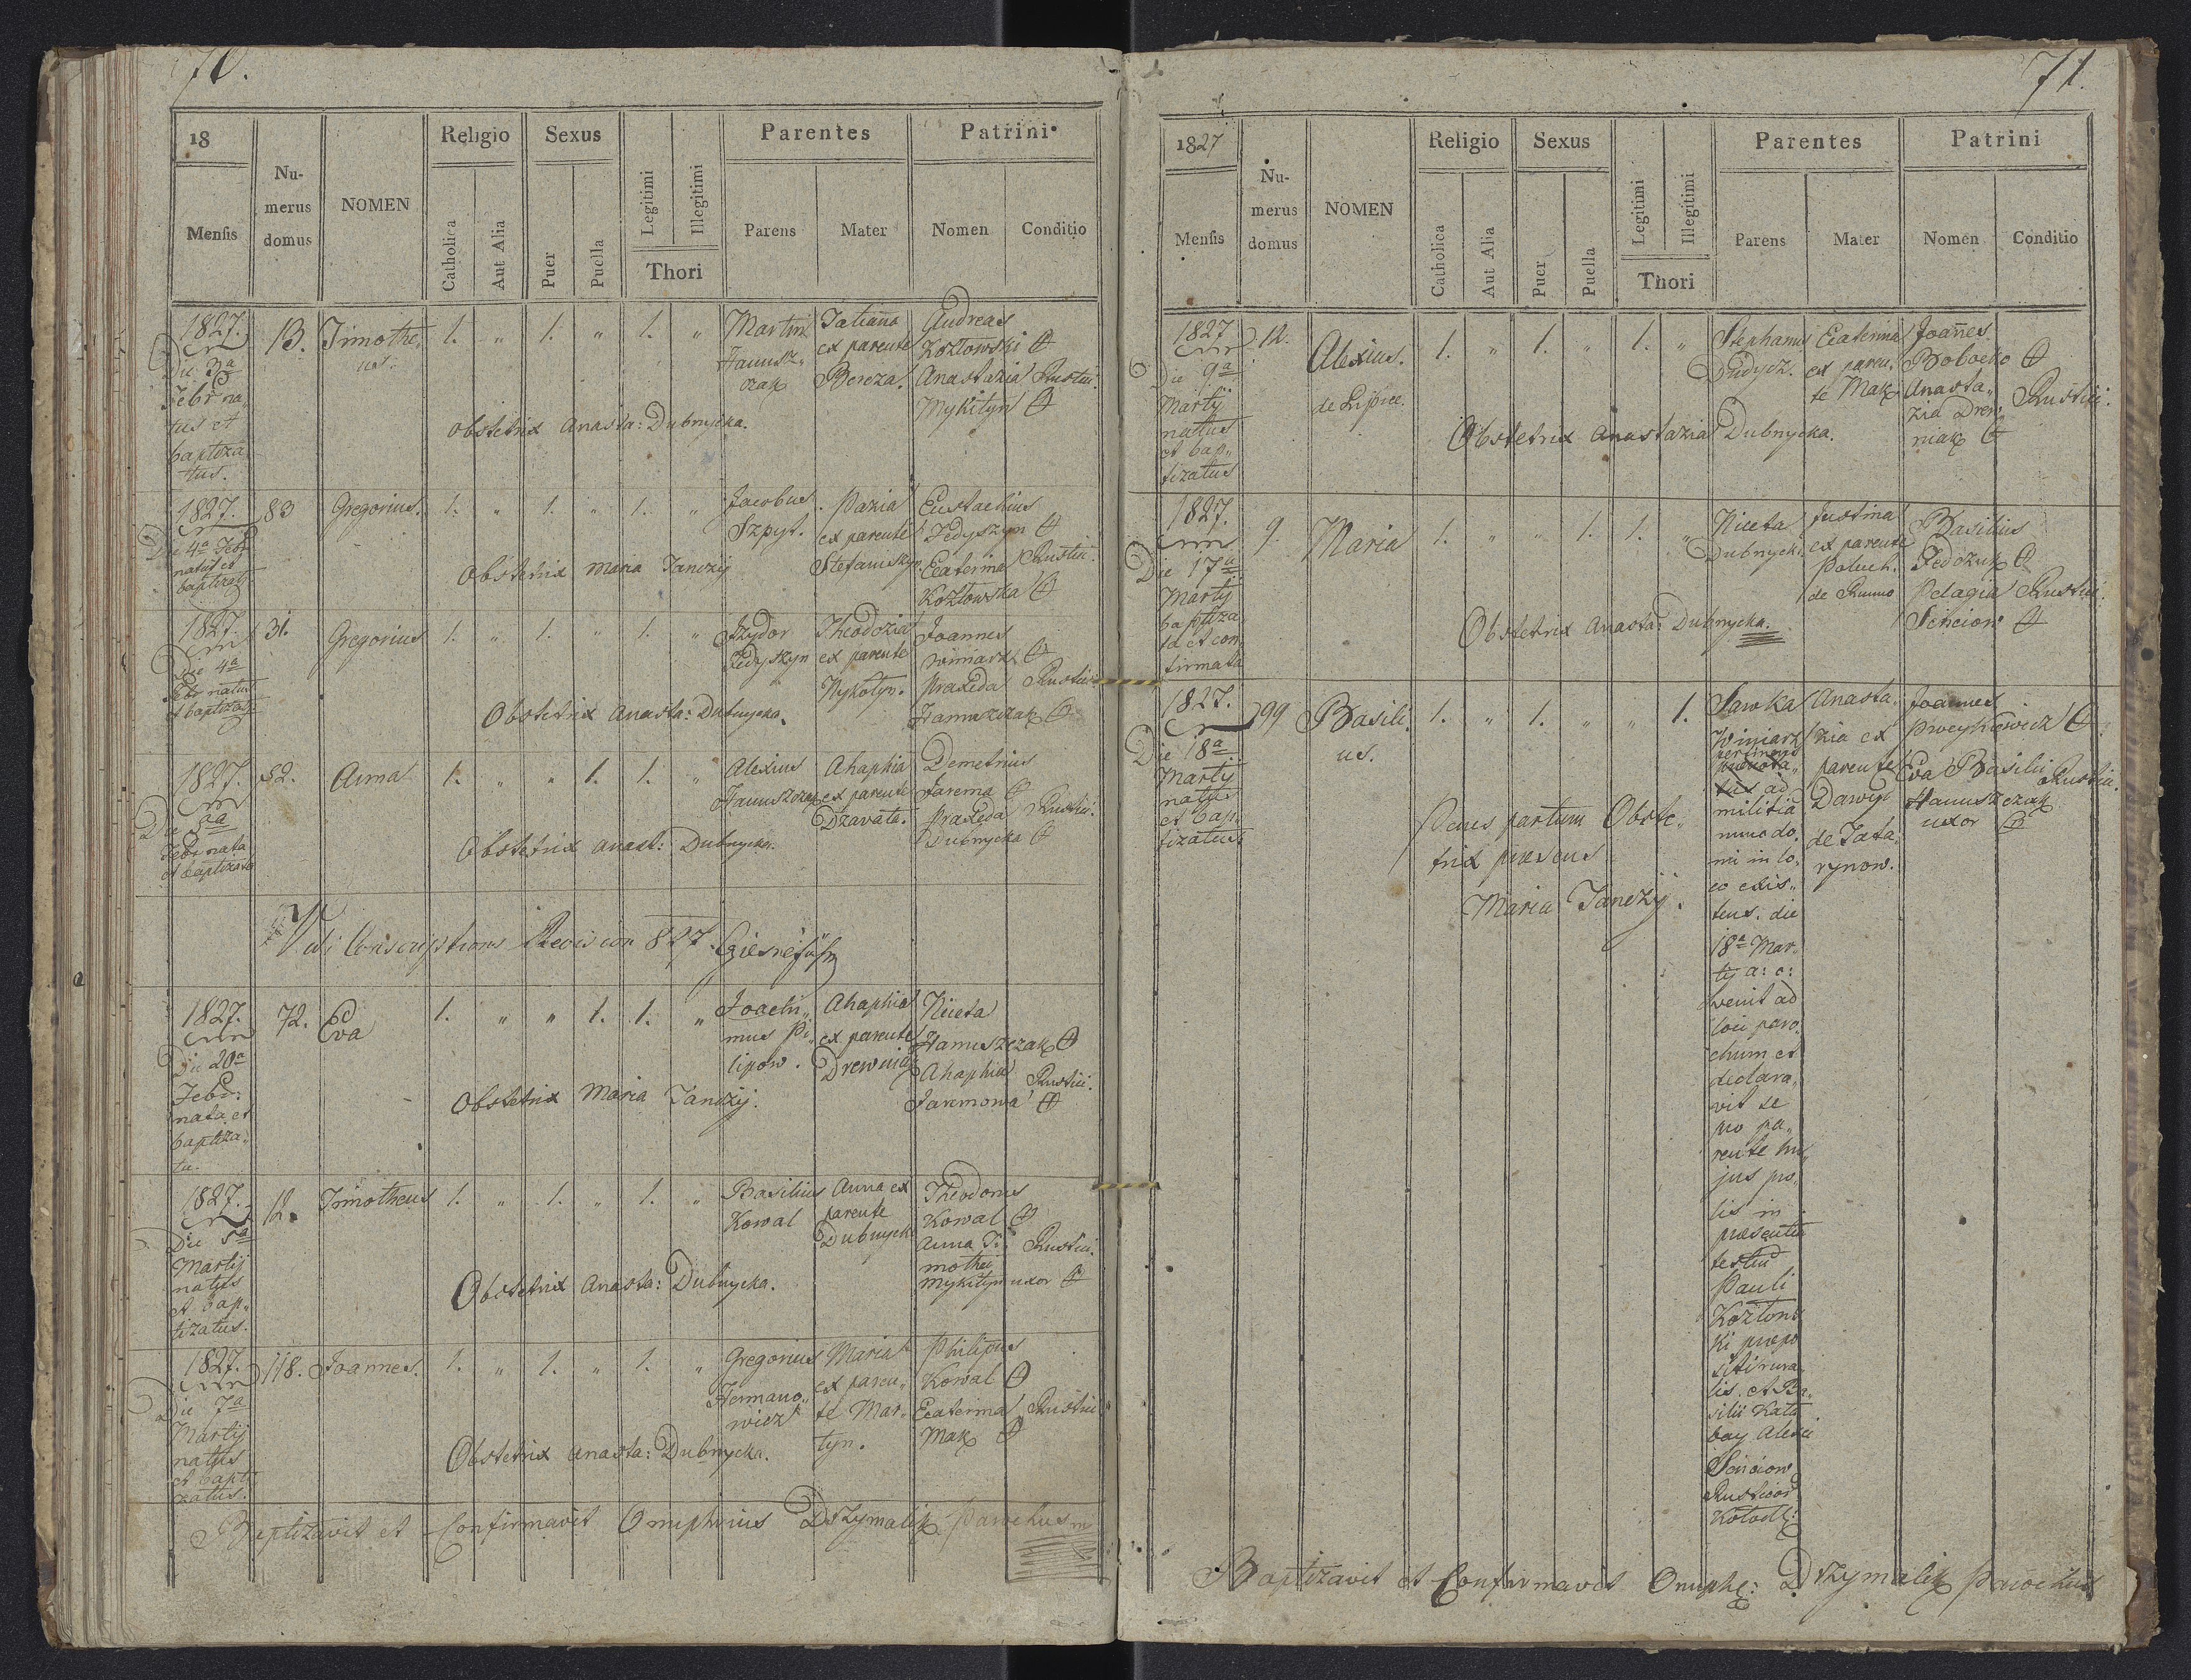 70.
18
Mensis
Nu-
merus
domus
NOMEN
Religio
Catholica
Aut Alia
Sexus
Puer
Puella
Legitimi
Illegitimi
Thori
Parentes
Parens
Mater
Patrini
Nomen
Conditio
1827.
Die 3a
Febr na
tus et
baptiza
tus.
13.
Timothe„
us.
1. „ 1. „ 1. „
Martin
Hanusz„
czak
Tatianna
ex parente
Bereza.
Andreas
Kozłowski
Anastazia Rustici.
Mykityn
Obstetrix Anasta: Dubnycka.
1827.
Die 4a Febr
natus et
baptizat
83
Gregorius.
1. „ 1. „ 1. „
Jacobus
Szpyt.
Pazia
ex parente
Stefaniszyn
Eustachius
Fedyszyn
Ecaterina Rustici.
Kozłowska
Obstetrix Maria Janczij
1827.
Die 4a
Febr natus
et baptizat
31.
Gregorius
1. „ 1. „ 1. „
Izydor
Fedyszyn
Theodozia
ex parente
Mykityn.
Joannes
Winiarz
Praxeda Rustici
Hanuszczak
Obstetrix Anasta: Dubnycka.
1827.
Die
Febr nata
et baptizata
52.
Anna
1. „ „ 1. 1. „
Alexius
Hanuszczak
Ahaphia
ex parente
Dzavata.
Demetrius
Jarema
Praxeda Rustici.
Dubnycka
Obstetrix Anast: Dubnycka.
Vidi Conscriptions Revision 827.
1827.
Die 20a
Febr:
nata et
baptiza„
ta.
72.
Eva
1. „ „ 1. 1. „
Joachi„
mus Pi„
lipow.
Ahaphia
ex parente
Drewniak
Niceta
Hanuszczak
Ahaphia Rustici.
Jaremowa
Obstetrix Maria Janczij.
1827.
Die 5a
Martij
natus
et bap„
tizatus.
12.
Timotheus
1. „ 1. „ 1. „
Basilius
Kowal
Anna ex
parente
Dubnycki
Theodorus
Kowal
Anna Ti„ Rustici.
mothei
Mykityn uxor
Obstetrix Anasta: Dubnycka.
1827.
Die 7a
Martij
natus
et bapti
zatus.
118.
Joannes.
1. „ 1. „ 1. „
Gregorius
Hermano„
wicz
Maria
ex paren„
te Mar„
tyn.
Philipus
Kowal
Ecaterina Rustici
Mak
Obstetrix Anasta: Dubnycka.
Baptizavit et Confirmavit Onuphrius Drzymalik Parochus
71.
1827
Mensis
Nu-
merus
domus
NOMEN
Religio
Catholica
Aut Alia
Sexus
Puer
Puella
Legitimi
Illegitimi
Thori
Parentes
Parens
Mater
Patrini
Nomen
Conditio
1827
Die 9a
Martij
natus
et bap„
tizatus
12.
Alexius.
1. „ 1. „ 1. „
Stephanus
Dudycz.
Ecaterina
ex paren„
te Mak
Joannes
Bobecko
Anasta„
zia Drew„ Rustici.
niak
Obstetrix Anastazia Dubnycka.
1827.
Die 17a
Martij
baptiza
ta et con
firmata
9.
Maria
1. „ „ 1. 1. „
Niceta
Dubnycki
Justina
ex parente
Paluch.
de Rumno
Basilius
Fedczuk
Pelagia Rustici.
Senciow
Obstetrix Anasta: Dubnycka.
1827.
Die 18a
Martij
natus
et bap„
tizatus
99
Basili„
us.
1. „ 1. „ „ 1.
Sawka
Winiarz
pertinens
ad
militia
nunc do„
mi in lo„
co exis„
tens. die
18a Mar„
tij a: c:
venit ad
loci paro„
chum et
declara„
vit se
pro pa„
rente hu„
jus pro„
lis in
presentia
testium
Pauli
Kozłows
ki prepo
siti rura„
lis. et Ba„
silii Kata
bay Alexii
Senciow
Rusticor
Anasta„
zia ex
parente
Dawyd
de Tata„
rynow.
Joannes
Eva Basilii Rustici.
Hanuszczak
uxor
Penes partum Obste„
trix presens
Maria Janczij.
Baptizavit et Confirmavit Onuph: Drzymalik Parochus